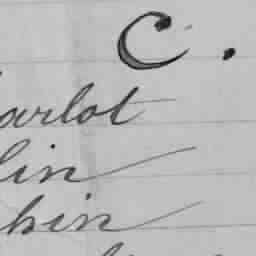 C.
arlot
lin
hin